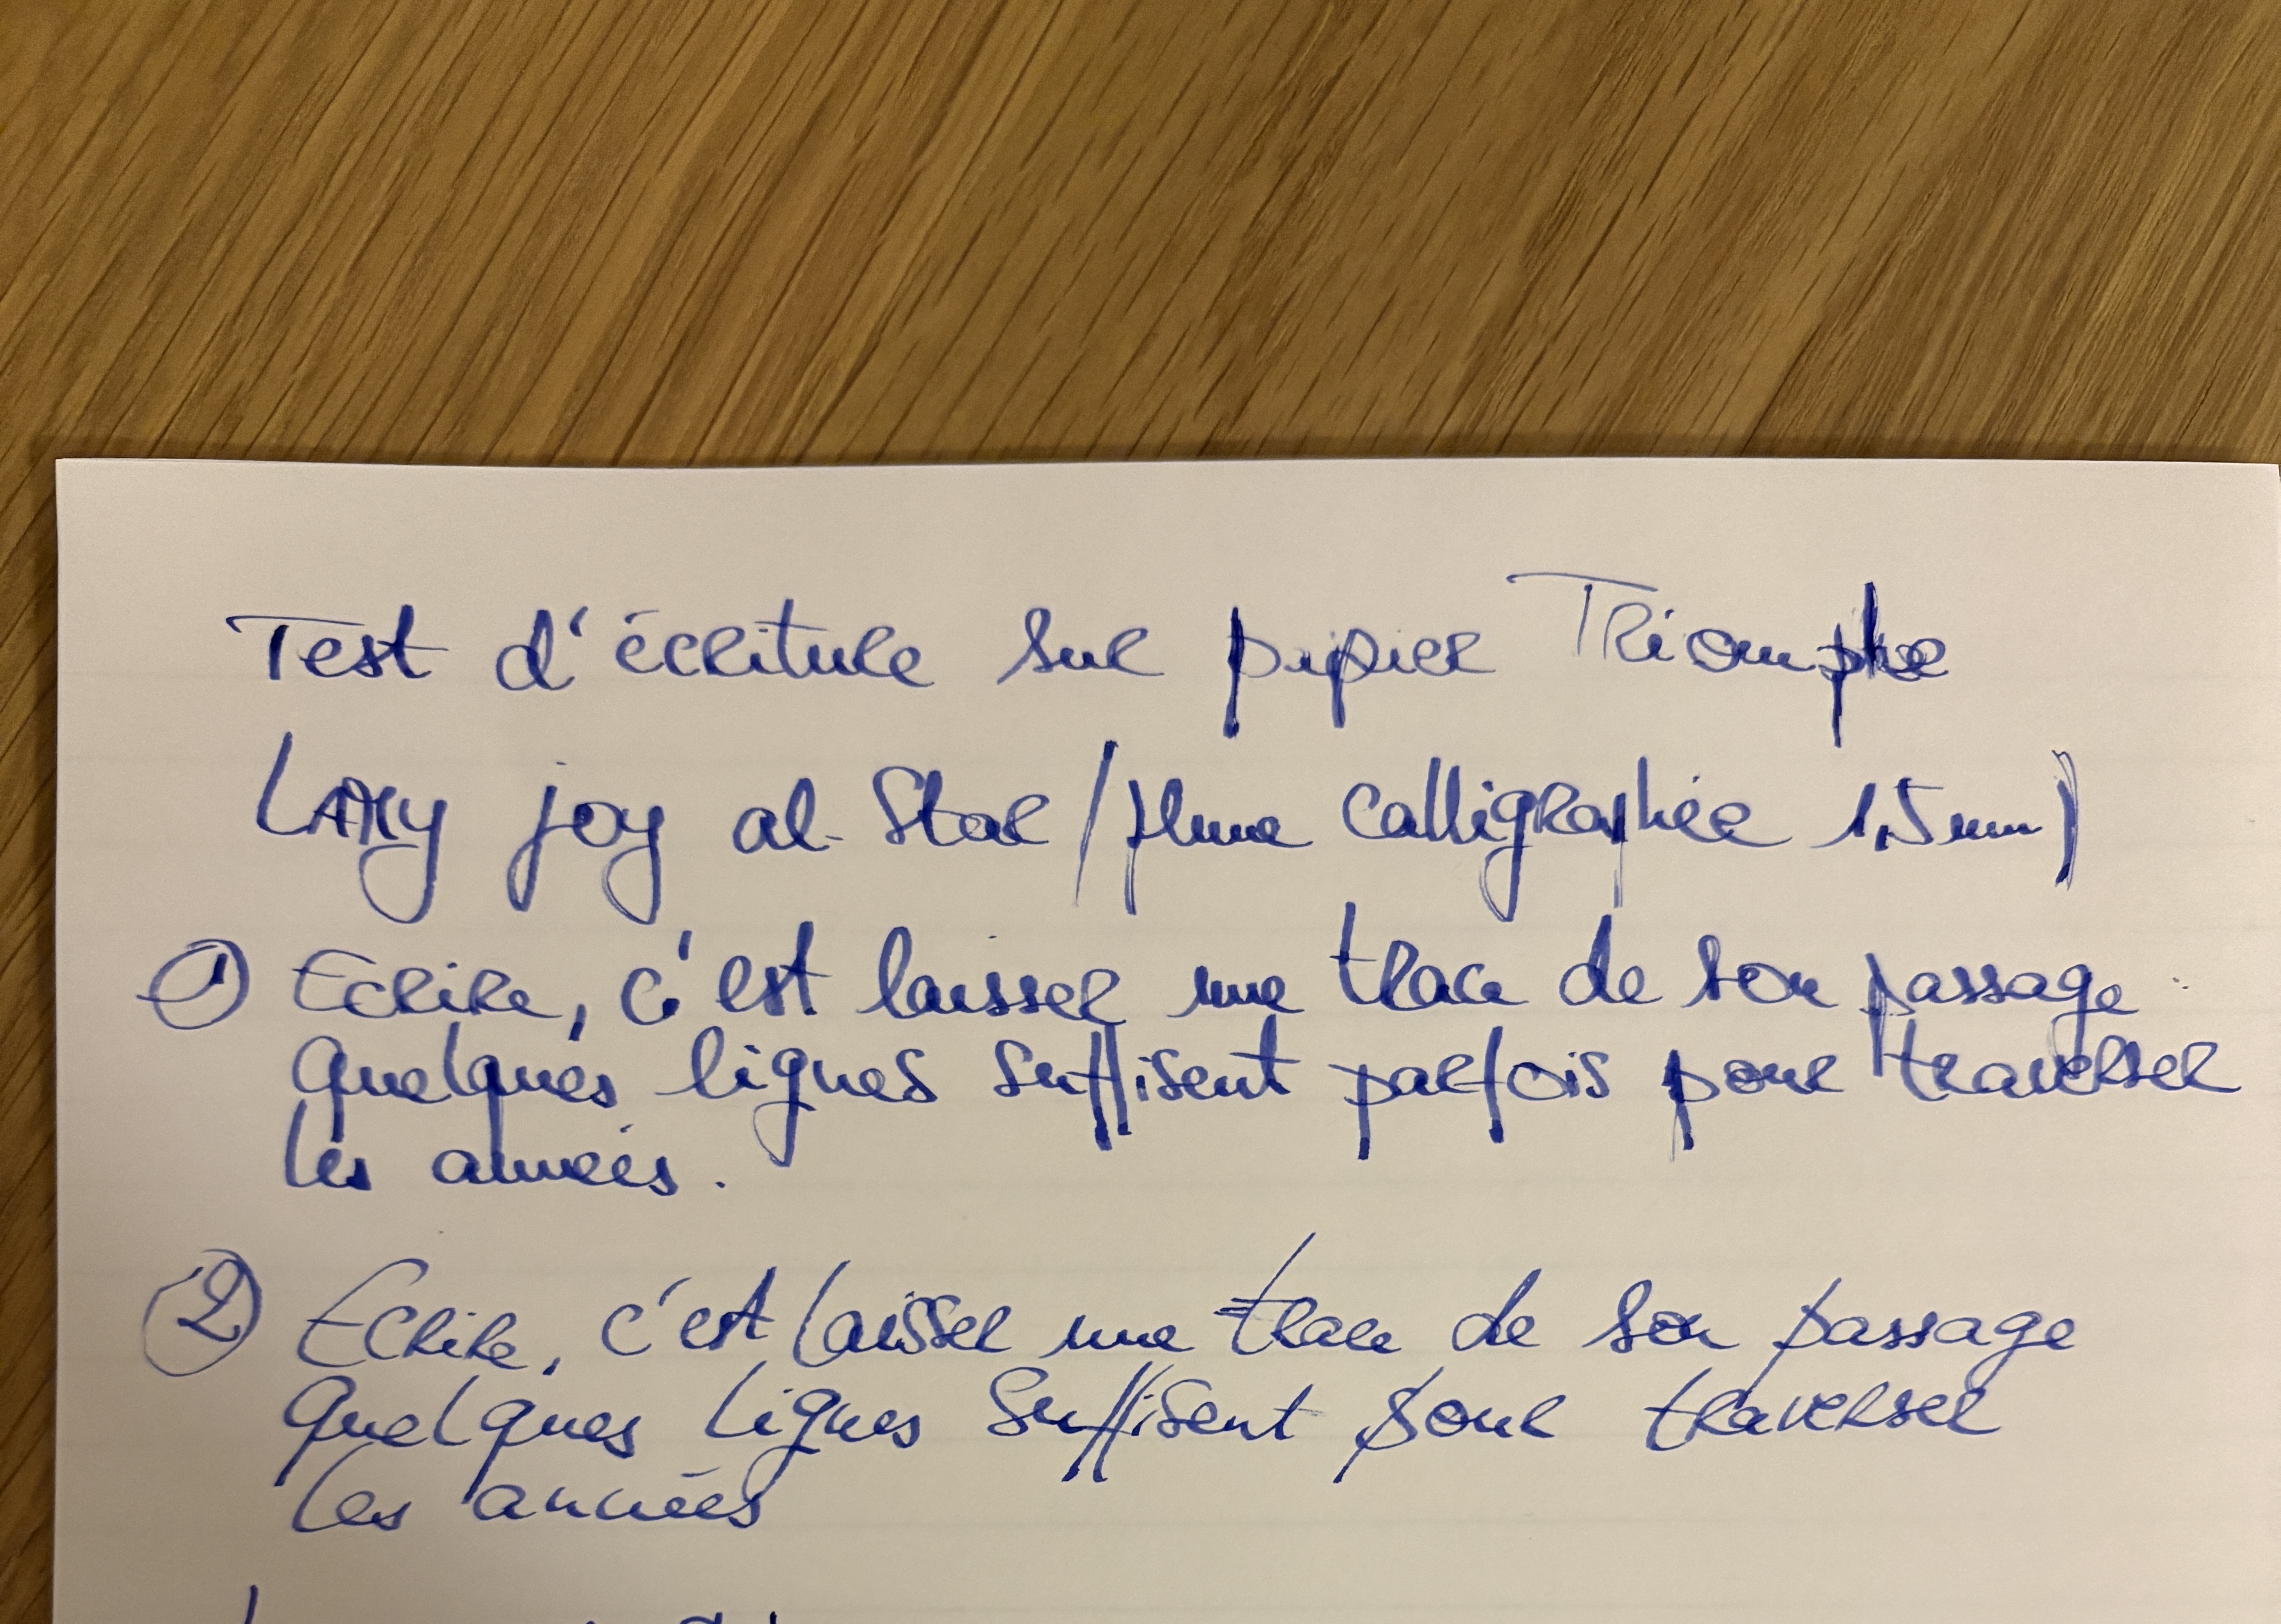 Test d'écriture sur papier Triomphe
LAMY joy al-Star (plume calligraphie 1,5 mm)
① Ecrire, c'est laisser une trace de son passage.
Quelques lignes suffisent parfois pour traverser
les années.
② Ecrire, c'est laisser une trace de son passage
Quelques lignes suffisent pour traverser
les années